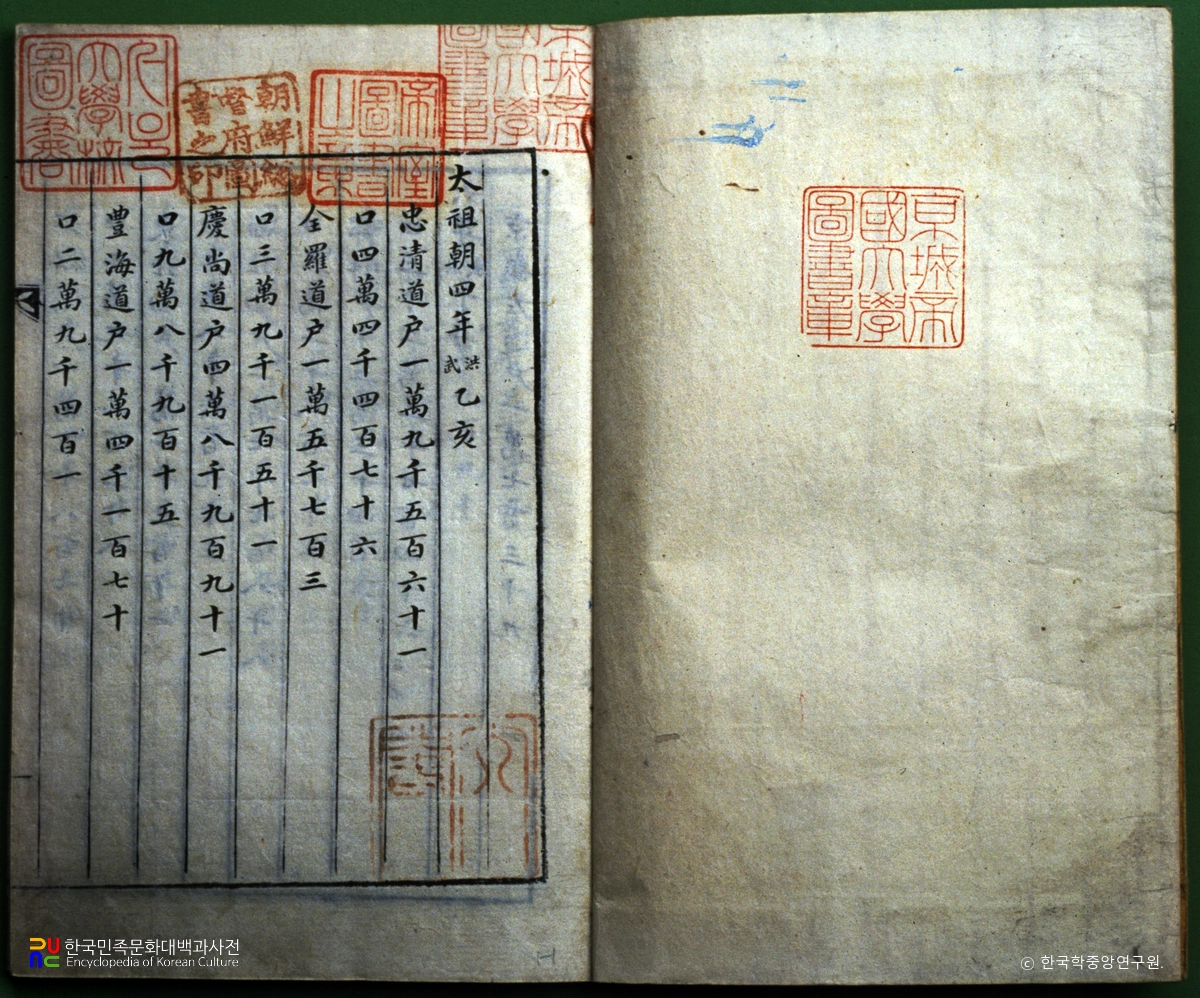 京城帝
國大學
圖書章
京城帝
國大學
圖書章
太祖朝四年洪武乙亥
忠清道户一萬九千五百六十一
口四萬四千四百七十六
全羅道户一萬五千七百三
口三萬九千一百五十一
慶尚道户四萬八千九百九十一
口九萬八千九百十五
豊海道户一萬四千一百七十
口二萬九千四百一
帝室
圖書
之章
朝鮮總
督府圖
書之印
서울
大學校
圖書
한국민족문화대백과사전
Encyclopedia of Korean Culture
ⓒ 한국학중앙연구원.